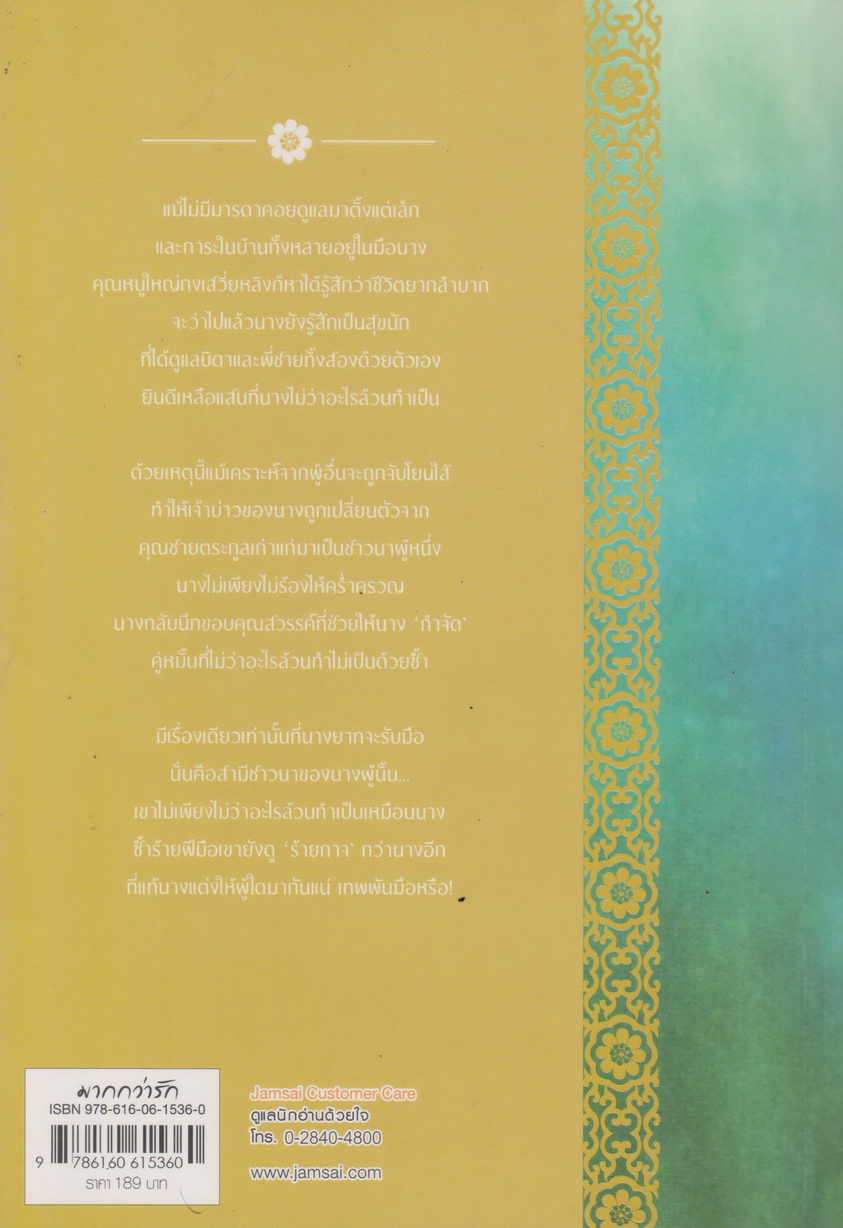 แม้ไม่มีมารดาคอยดูแลมาตั้งแต่เล็ก
และภาระในบ้านทั้งหลายอยู่ในมือนาง
คุณหนูใหญ่กงเสวี่ยหลิงก็หาได้รู้สึกว่าชีวิตยากลำบาก
จะว่าไปแล้วนางยังรู้สึกเป็นสุขนัก
ที่ได้ดูแลบิดาและพี่ชายทั้งสองด้วยตัวเอง
ยินดีเหลือแสนที่นางไม่ว่าอะไรล้วนทำเป็น
ด้วยเหตุนี้แม้เคราะห์จากผู้อื่นจะถูกจับโยนใส่
ทำให้เจ้าบ่าวของนางถูกเปลี่ยนตัวจาก
คุณชายตระกูลเก่าแก่มาเป็นชาวนาผู้หนึ่ง
นางไม่เพียงไม่ร้องไห้คร่ำครวญ
นางกลับนึกขอบคุณสวรรค์ที่ช่วยให้นาง ‘กำจัด’
คู่หมั้นที่ไม่ว่าอะไรล้วนทำไม่เป็นด้วยซ้ำ
มีเรื่องเดียวเท่านั้นที่นางยากจะรับมือ
นั่นคือสามีชาวนาของนางผู้นั้น...
เขาไม่เพียงไม่ว่าอะไรล้วนทำเป็นเหมือนนาง
ซ้ำร้ายฝีมือเขายังดู ‘ร้ายกาจ’ กว่านางอีก
ที่แท้นางแต่งให้ผู้ใดมากันแน่ เทพพันมือหรือ!
มากกว่ารัก
ISBN 978-616-06-1536-0
9 786160 615360
ราคา 189 บาท
Jamsai Customer Care
ดูแลนักอ่านด้วยใจ
โทร. 0-2840-4800
www.jamsai.com